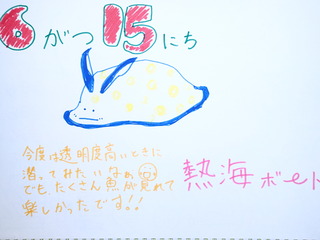 6がつ15にち
今度は透明度高いときに
潜ってみたいなぁ
でも、たくさん魚が見れて
楽しかったです!!
熱海ボート